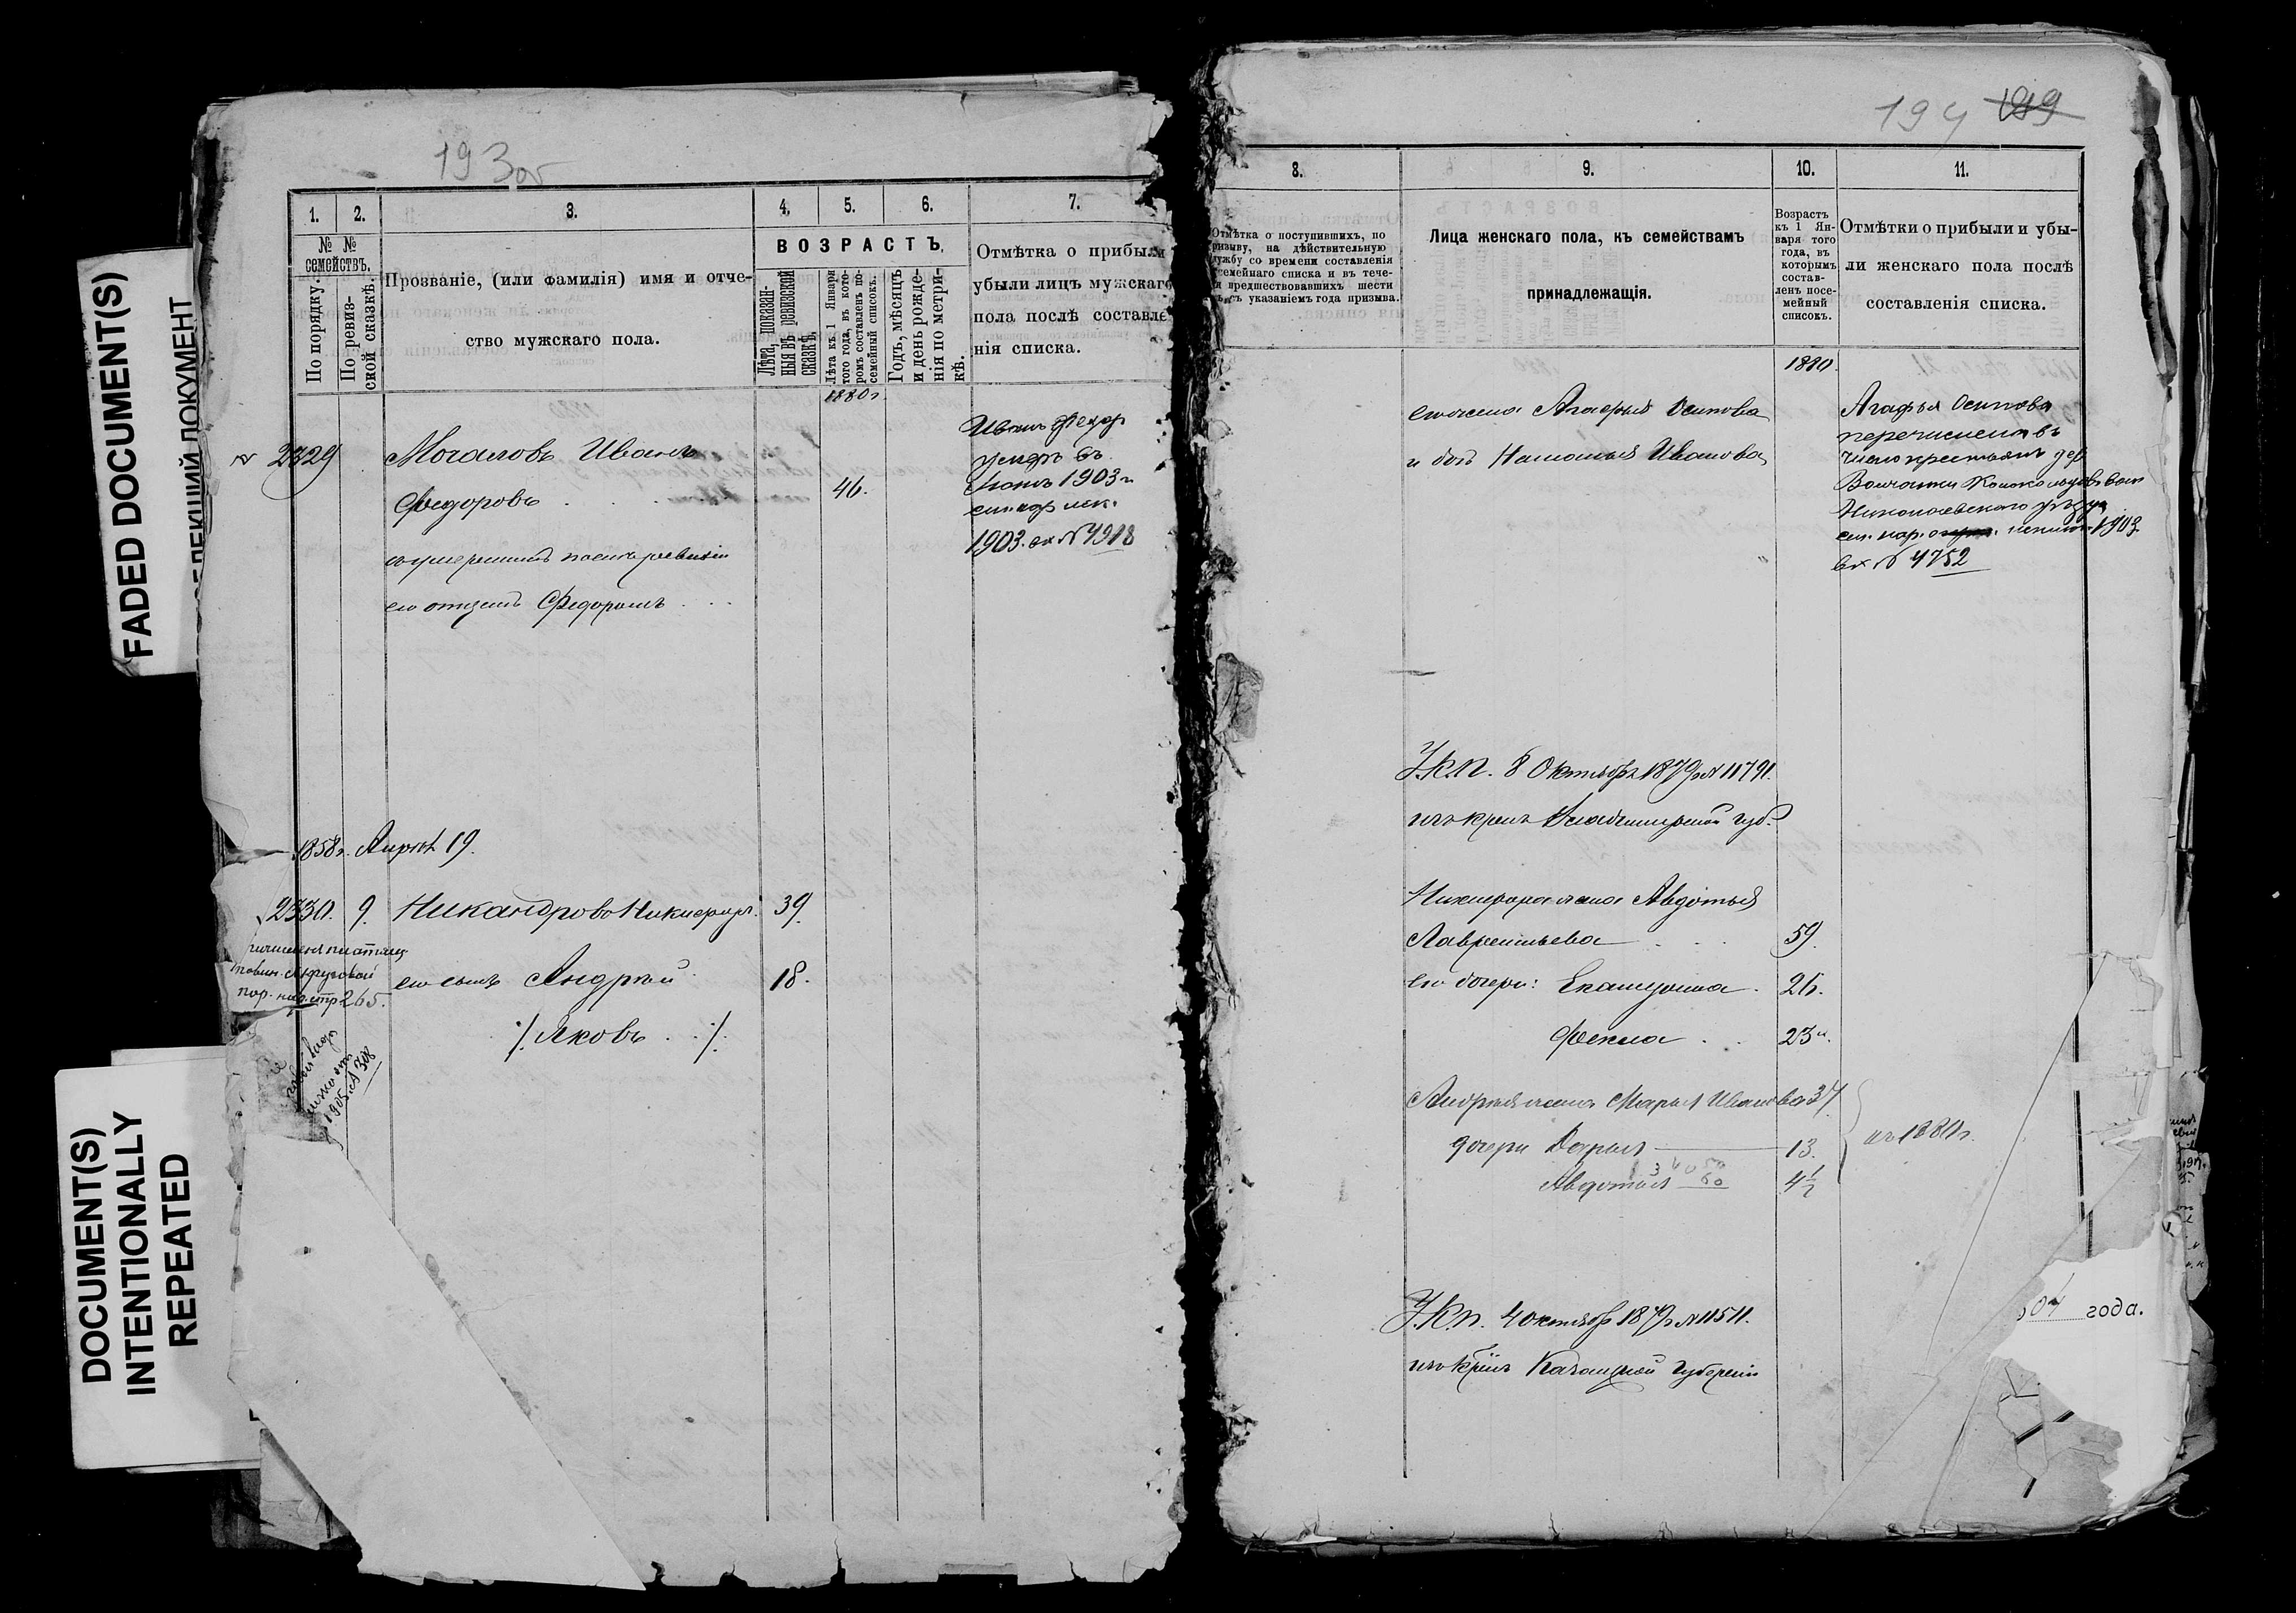 FADED DOCUMENT(S)
ДОКУМЕНТ
DOCUMENT(S)
INTENTIONALLY
REPEATED
193 об
1. 2. 3. 4. 5. 6. 7.
№ №
семействъ.
По порядку.
По ревиз-
ской сказкѣ.
Прозваніе, (или фамилія) имя и отче-
ство мужскаго пола.
ВОЗРАСТЪ.
Лѣта, показан-
ныя въ ревизской
сказкѣ.
Лѣта къ 1 Января
того года, въ кото-
ромъ составленъ по-
семейный списокъ.
Годъ, мѣсяцъ
и день рожде-
нія по метри-
кѣ.
Отмѣтка о прибыли
убыли лицъ мужскаго
пола послѣ составле
нія списка.
1880 г.
2329
Мочаловъ Иванъ
Федоровъ 46.
съ умершимъ послѣ ревизіи
его отцемъ Федоромъ
Иванъ Федор
умеръ въ
1903 г.
1903. вх № 4918
1858 г. Апрѣл 19.
2330. 9. Никандровъ Никифоръ. 39.
его сынъ Андрей 18.
Яковъ
пор. стр 265.
1905 № 308
194 199
8. 9. 10. 11.
Отмѣтка о поступившихъ, по
ризыву, на дѣйствительную
лужбу со времени составленія
семейнаго списка и въ тече-
и предшествовавшихъ шести
съ указаніемъ года призыва.
Лица женскаго пола, къ семействамъ
принадлежащія.
Возрастъ
къ 1 Ян-
варя того
года, въ
которомъ
состав-
ленъ посе-
мейный
списокъ.
Отмѣтки о прибыли и убы-
ли женскаго пола послѣ
составленія списка.
1880.
его жена Агафья Осипова
и дочь Наталья Иванова
Агафья Осипова
перечислена въ
число крестьянъ дер
Волчанки Колокольцов. вол
Николаевскаго уѣзда
1903
вх № 4752
У.К.П. 8 Октября 1879 г № 11791.
изъ крест Владимирской губ.
Никифора жена Авдотья
Лаврентьева 59.
его дочери: Екатерина 26.
Фекла 23
Андрея жена Марья Иванова 37
дочери Дарья 13.
Авдотья 4½
къ 1880 г.
У.К.П. 4 октябр 1879 г № 11511.
изъ крест Казанской губерніи
04 года.